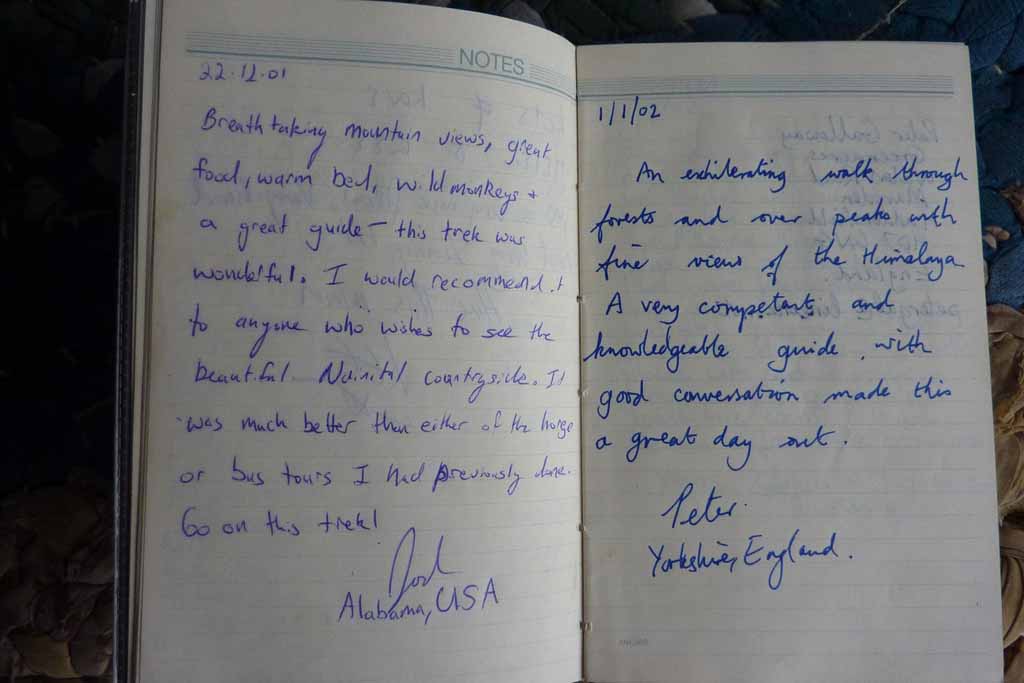 NOTES
22.12.01
Breathtaking mountain views, great
food, warm bed, wild monkeys +
a great guide – this trek was
wonderful. I would recommend it
to anyone who wishes to see the
beautiful Nainital countryside. It
was much better than either of the horse
or bus tours I had previously done.
Go on this trek!
Alabama, USA
1/1/02
An exhilerating walk through
forests and over peaks with
fine views of the Himalaya
A very competant and
knowledgeable guide, with
good conversation made this
a great day out.
Peter.
Yorkshire, England.